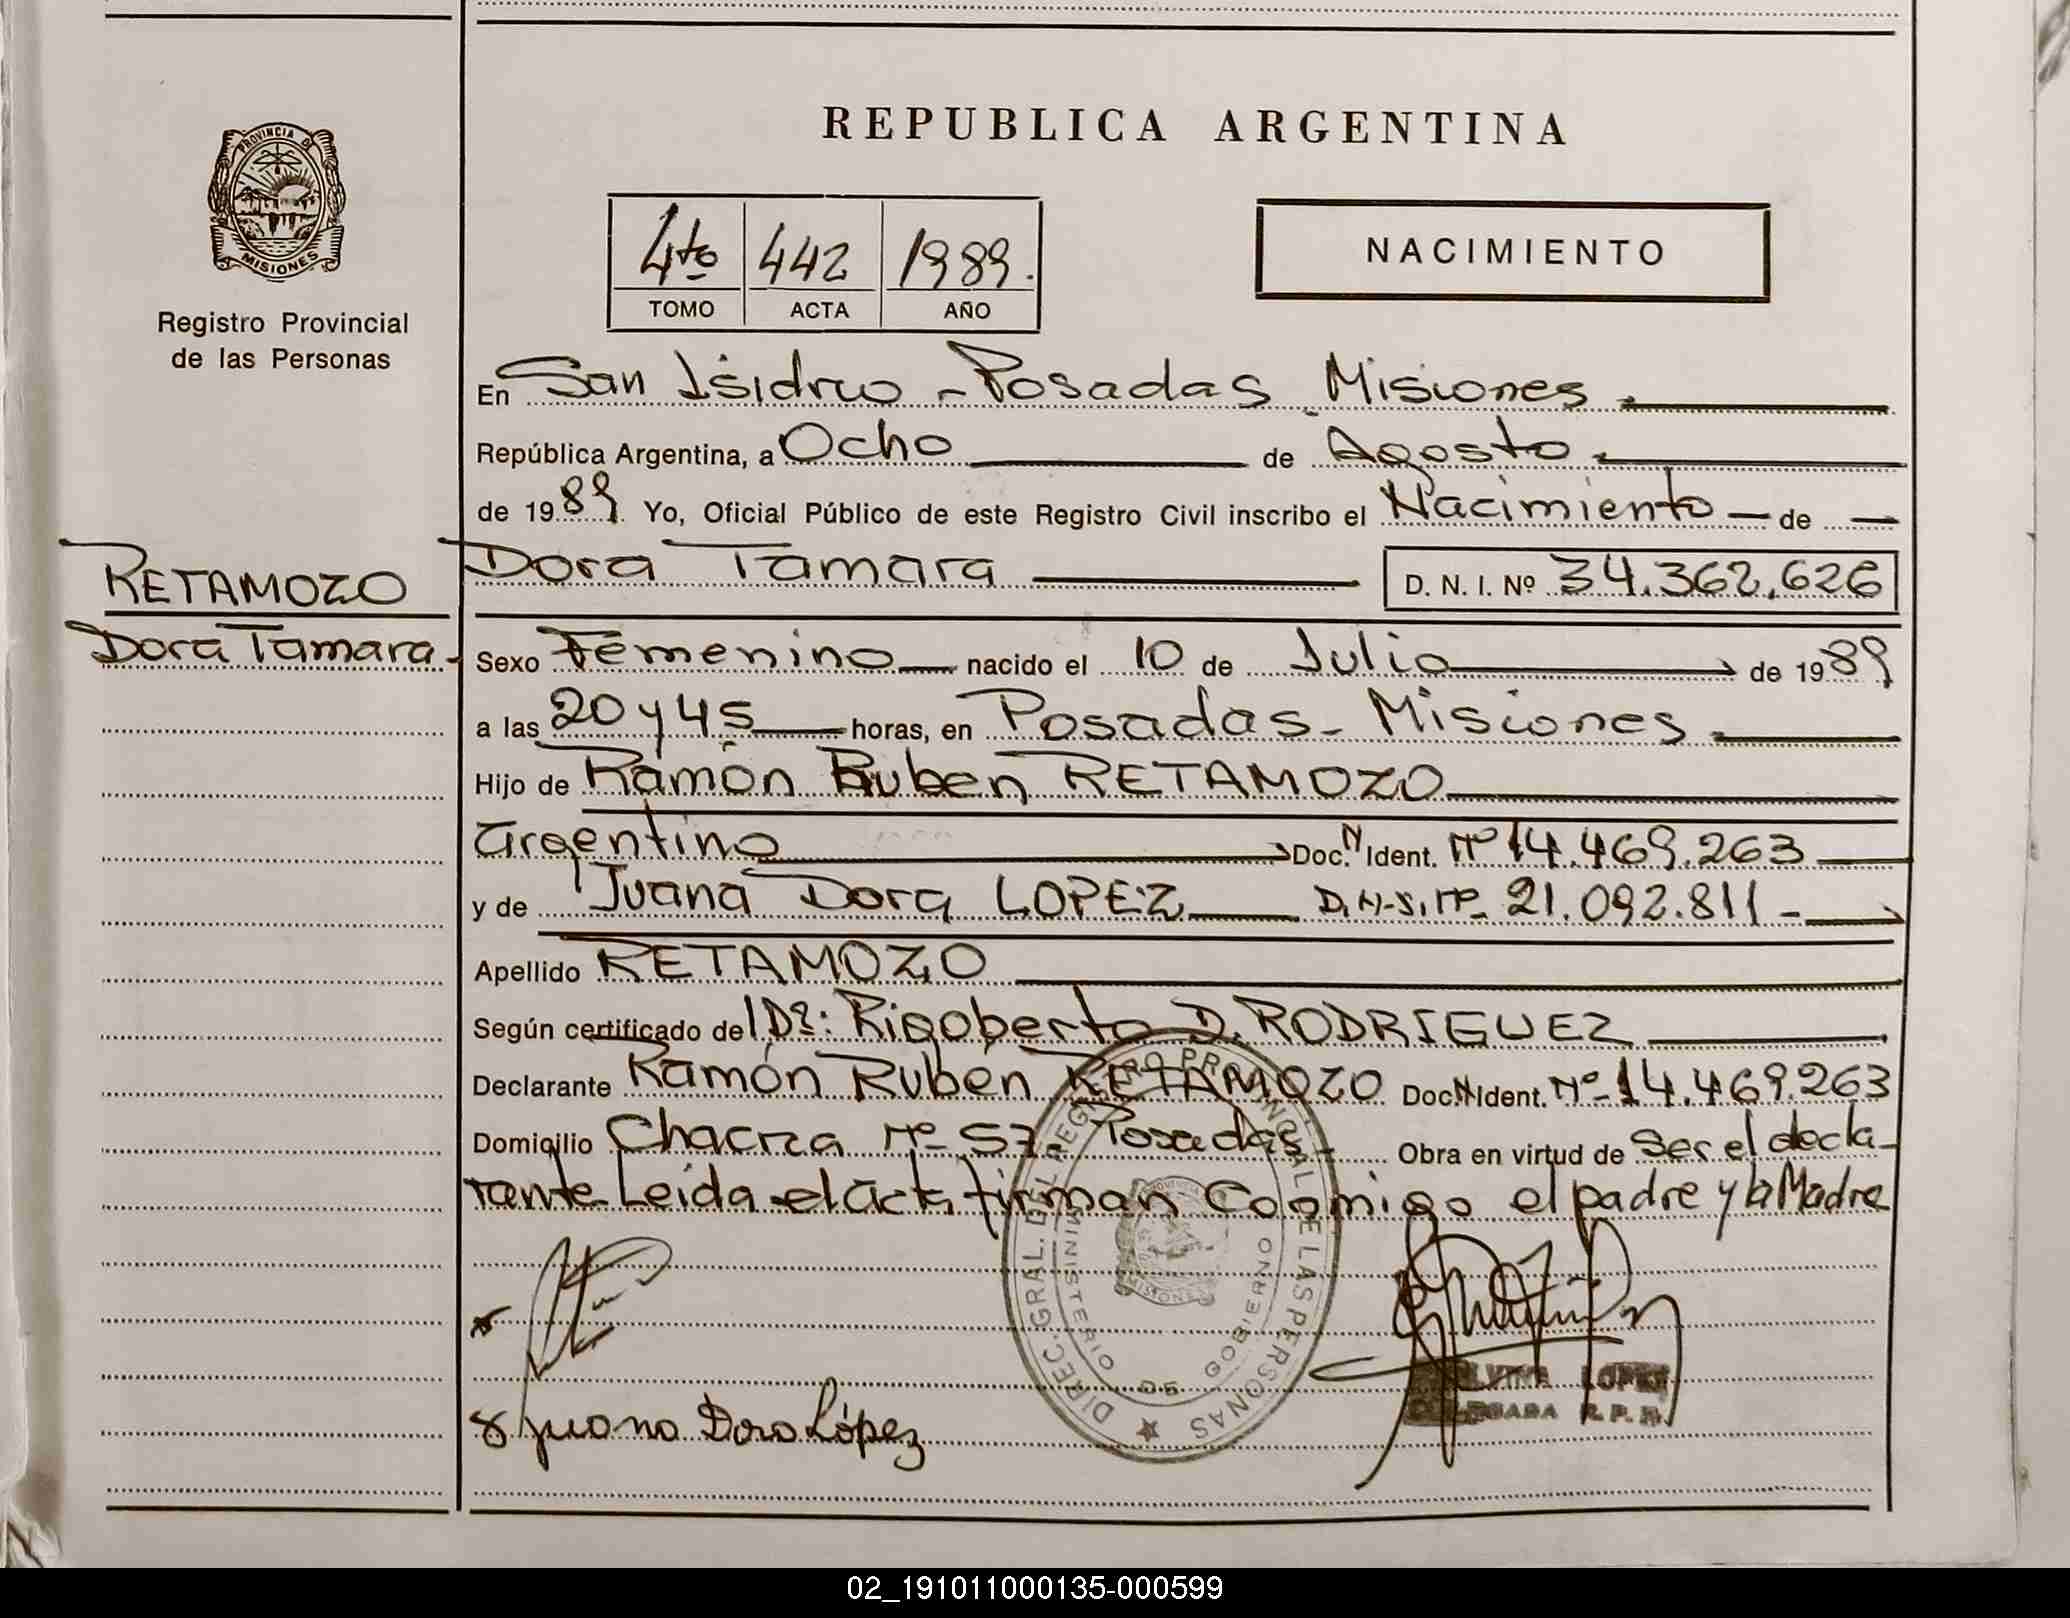 REPUBLICA ARGENTINA
PROVINCIA DE
MISIONES
Registro Provincial
de las Personas
4to 442 1989.
TOMO ACTA AÑO
NACIMIENTO
En San Isidro - Posadas Misiones.
República Argentina, a Ocho de Agosto.
de 1989 Yo, Oficial Público de este Registro Civil inscribo el Nacimiento — de —
RETAMOZO
Dora Tamara.
Dora Tamara D. N. I. Nº 34.362.626
Sexo Femenino nacido el 10 de Julio de 1989
a las 20 y 45 horas, en Posadas - Misiones.
Hijo de Ramón Ruben RETAMOZO
argentino Doc. N Ident. Nº 14.469.263
y de Juana Dora LOPEZ D.N.I. Nº 21.092.811 -
Apellido RETAMOZO
Según certificado del Dr: Rigoberto D. RODRIGUEZ
Declarante Ramón Ruben RETAMOZO Doc. N Ident. Nº 14.469.263
Domicilio Chacra Nº 57 - Posadas - Obra en virtud de Ser el decla-
rante Leida el acta firman Conmigo el padre y la Madre
DIREC. GRAL. DEL REGISTRO PROVINCIAL DE LAS PERSONAS
MINISTERIO DE GOBIERNO
Juana Dora López
LOPEZ
R. P. P.
02_191011000135-000599